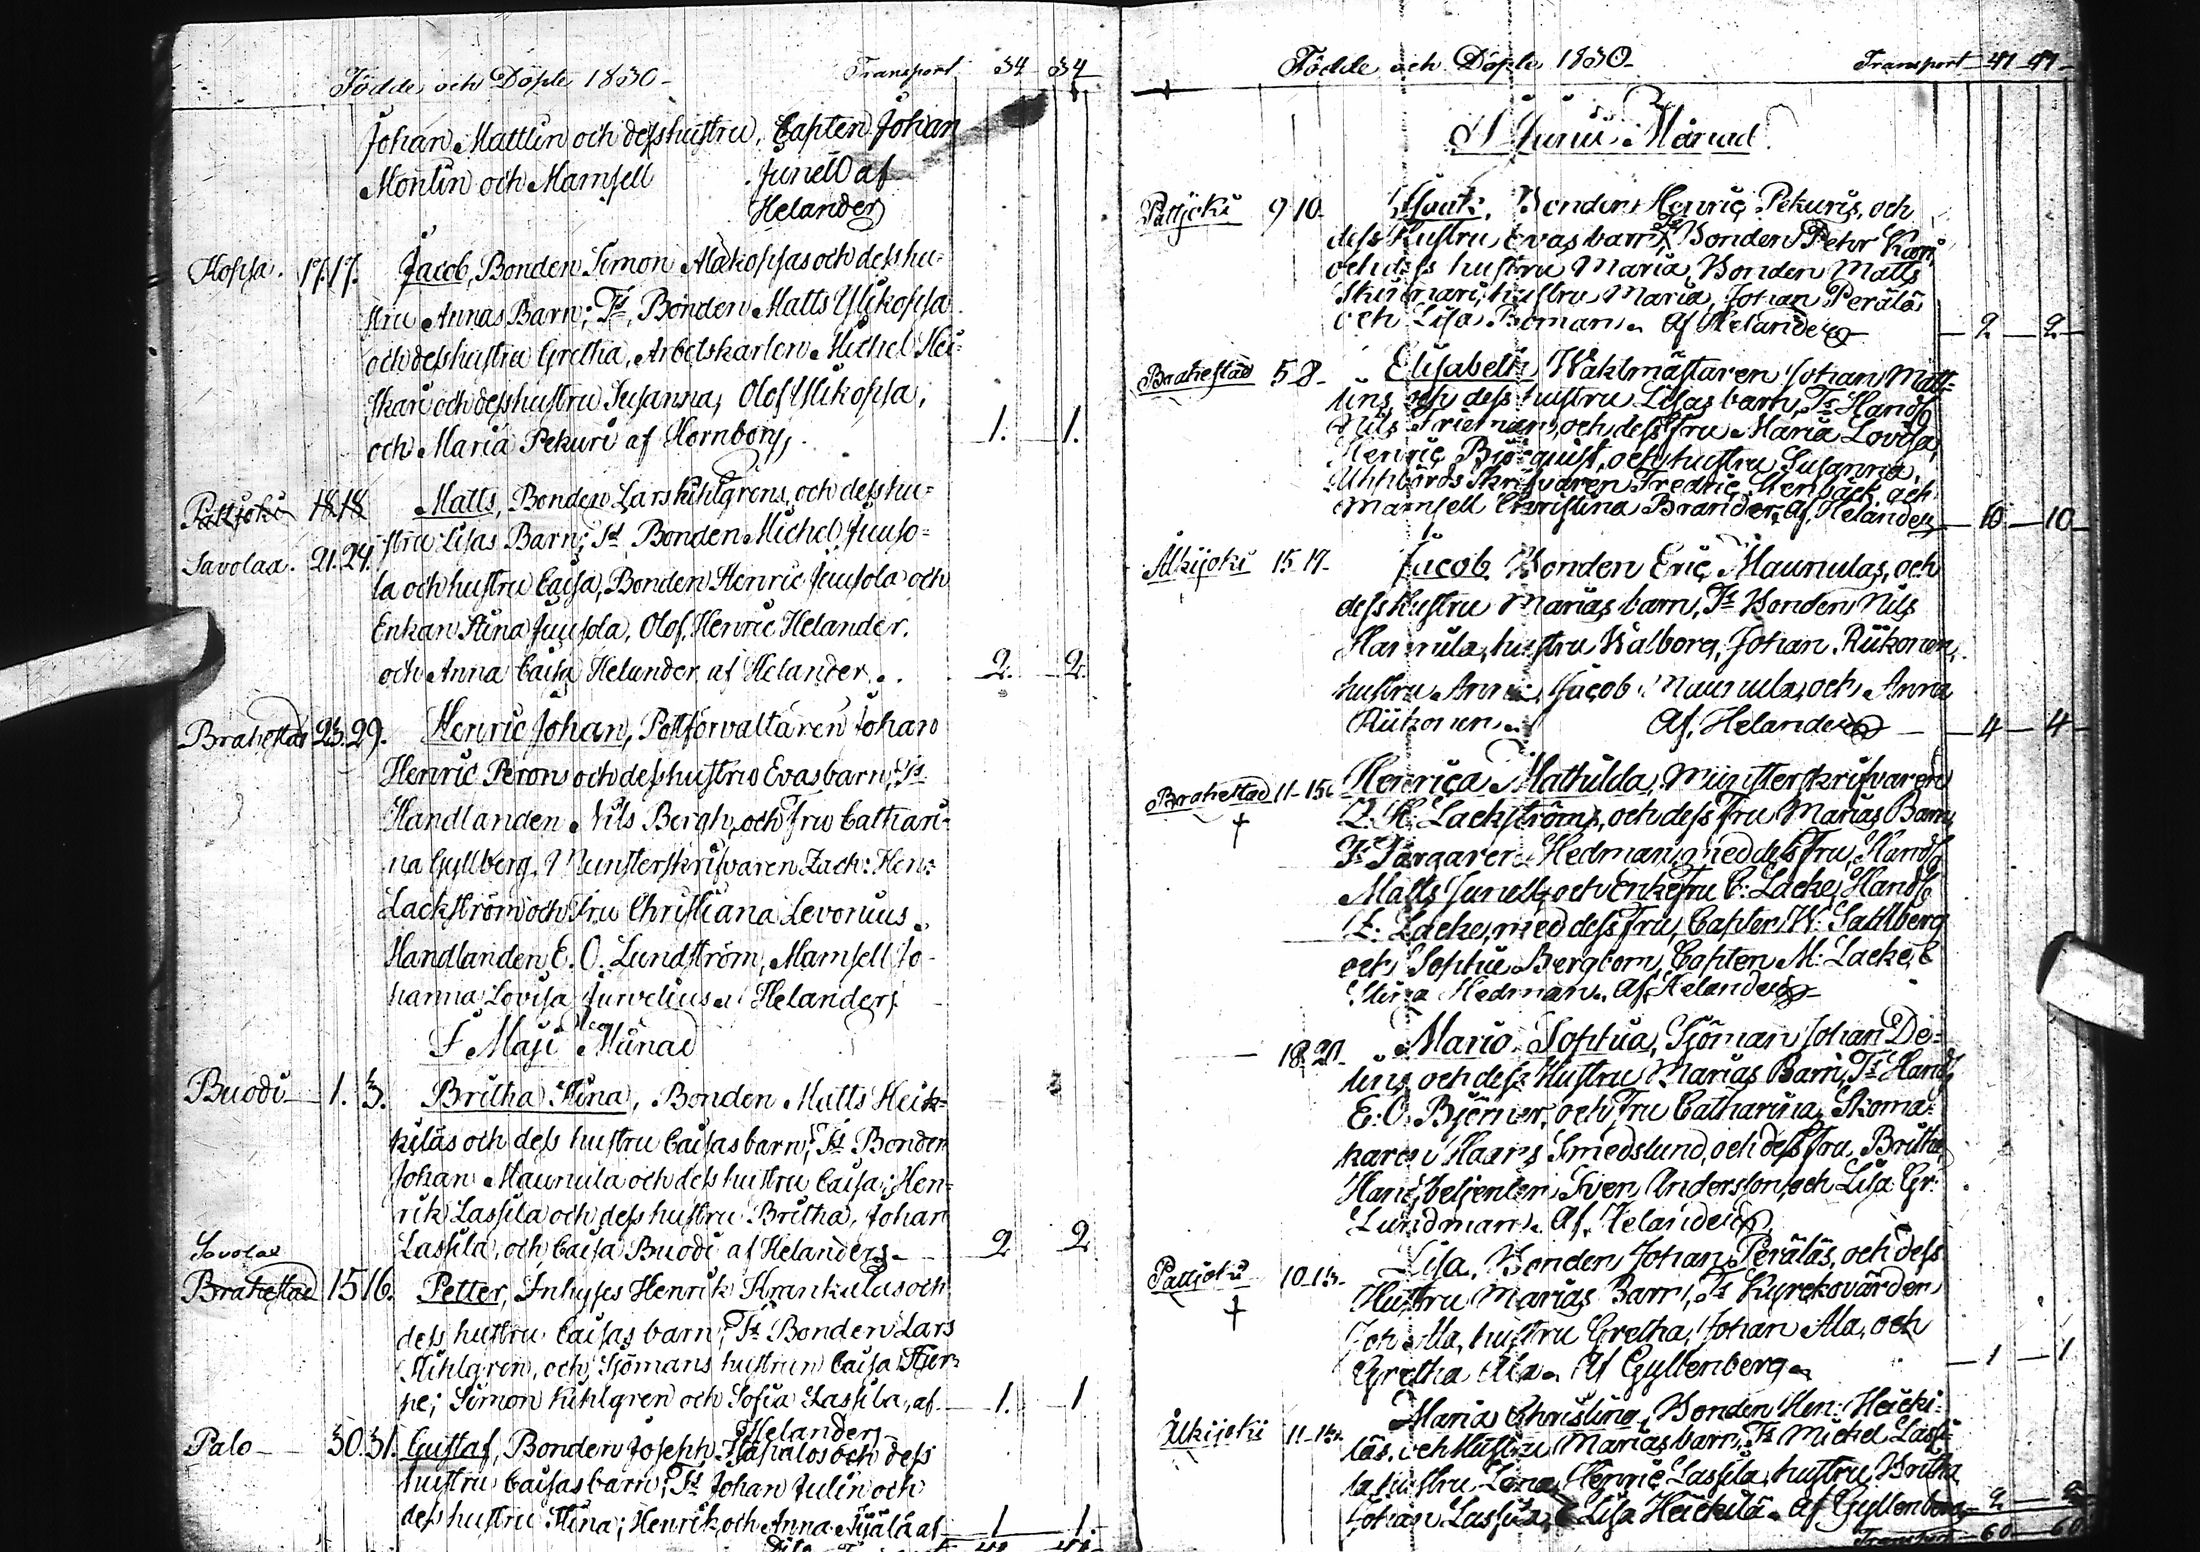 Födde och Döpte 1830 - Transport 34 34
Johan Mattlin och dess hustru, Capten Johan
Montin och Mamsell Junell af
Helander
Kopsa. 17. 17. Jacob, Bonden Simon Alakopsas och dess hu-
stru Annas Barn; Ts. Bonden Matts Ylikopsa
och dess hustru Gretha, Arbetskarlen Michel Hei-
skari och dess hustru Susanna, Olof Ylikopsa,
och Maria Pekuri af Hornborg. 1. 1.
Pattjoki 18. 18 Matts, Bonden Lars Kihlgrens, och dess hu-
stru Lisas Barn; Ts. Bonden Michel Juuso-
Savolax. 21. 24.
la och hustru Caisa, Bonden Henric Juusola och
Enkan Stina Juusola, Olof Henric Helander.
och Anna Caisa Helander af Helander. 2. 2.
Brahestad 23. 29. Henric Johan, Postförvaltaren Johan
Henric Perons och dess hustrus Evas barn, Ts.
Handlanden Nils Bergh, och Fru Cathari-
na Gyllberg. Munsterskrifvaren Zach: Hen:
Lackström och Fru Christiana Levonius.
Handlanden E. O. Lundström, Mamsell Jo-
hanna Lovisa Jurvelius af Helander.
I Maji Månad
Buodi 1. 3. Britha Stina, Bonden Matts Heik-
kiläs och dess hustru Caisas barn; Ts. Bonden
Johan Maunula och dess hustru Caisa; Hen-
rik Lassila och dess hustru Britha, Johan
Lassila, och Caisa Buodi af Helander. 2 2
Savolax
Brahestad 15 16. Petter, Inhyses Henrik Krankulas och
dess hustru Caisas barn; Ts. Bonden Lars
Kihlgren, och Sjömans hustrun Caisa
pe; Simon Kihlgren och Sofia Lassila, af 1. 1
Helander
Palo 30. 31. Gustaf, Bonden Joseph och dess
hustru Caisas barn; Ts. Johan Julin och
dess hustru Stina; Henrik och Anna af 1 1.
Födde och Döpte 1830 - Transport 41 41
I Junii Månad
Pattjoki 9 10. Bonden Henric Pekuris, och
dess Hustru Evas barn, Ts. Bonden Pehr
och dess hustru Maria, Bonden Matts
hustru Maria, Johan Perälä
och Lisa Boman. Af Helander 2 2
Brahestad 5 8. Elisabeth, Waktmästaren Johan Matt-
lins, och dess hustru Lisas barn, Ts. Handl.
Nils Frieman, och dess Fru Maria Lovisa,
Henric Björquist, och hustru Susanna,
Uppbörds Skrifvaren Fredric Stenbäck och
Mamsell Christina Brander, Af Helander 10 10
Alkijoki 15 17. Jacob, Bonden Eric Maunulas, och
dess Hustru Marias barn, Ts. Bonden Nils
Hannula, hustru Walborg, Johan Riikonen,
hustru Anna, Jacob Maunula, och Anna
Riikonen. Af. Helander 4 4
Brahestad 11 15. Henrica Mathilda, Münsterskrifvaren
Z. H. Lackströms, och dess Fru Marias Barn,
Ts. Färgaren Hedman med dess Fru, Handl
Matts Junell, och Enkefru C: Lacke, Handl
L: Lacke, med dess Fru, Capten W. Sahlberg
och Sophie Bergbom, Capten M: Lacke, &
Stina Hedman. Af Helander
18. 21. Maria Sophia, Sjöman Johan De-
lins, och dess Hustru Marias Barn, Ts. Handl
E: O. Björner, och Fru Catharina, Skoma-
karen Smedslund, och dess Fru Britha,
Hand. betjenten Sven Andersson, och Lisa Gr:
Lundman. Af. Helander
Pattjoki 10 13. Lisa, Bonden Johan Peräläs, och dess
Hustru Marias Barn, Ts. Kyrkovärden
Joh Ala, hustru Gretha, Johan Ala, och
Gretha Ala. Af Gyllenberg 1 1
Alkijoki 11 13. Maria Christina, Bonden Hen: Heicki-
läs, och Hustru Marias barn, Ts. Michel Lassi-
la hustru Lena, Henric Lassila, hustru Britha
Johan Lassila, & Lisa Heickilä. Af Gyllenberg 2 2
Transport 60 60